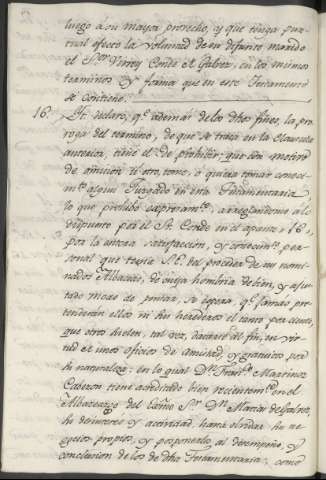 luego á su mayor provecho, y que tenga pun-
tual efecto la voluntad de su difunto marido
el S.or Virrey Conde de Galvez, en los mismos
terminos y forma que en este Testamento
se contiene.
16. It. declaro, q.e además de los dhos fines, la pro-
roga del termino, de que se trata en la Clausula
anterior, tiene el de prohibir, que con motivo
de omision ú otro, tome, ó quiera tomar conoci-
m.to algun Juzgado en esta Testamentaria,
lo que prohibo expresam.te, arreglandome á lo
dispuesto por el S.r Conde en el aparte, 16,
por la entera satisfaccion, y
que tenia S.E. del proceder de sus nomi-
nados Albaceas, de cuya hombria de bien, y ajus-
tado modo de pensar, se espera, q.e jamas pre-
tenderán ellos ni sus herederos el tanto por ciento,
que otros suelen, tal vez, sacar al fin, en vir-
tud de unos oficios de amistad, y gratuitos por
su naturaleza: en lo qual D.n Fran.co Martinez
Cabezon tiene acreditado bien recientem.te en el
Albaceazgo del Exmo S.or D.n Matias de Galvez,
su desinterés y actividad, hasta olvidar sus ne-
gocios propios, y posponerlos al desempeño, y
conclusion de los de dha Testamentaria; como